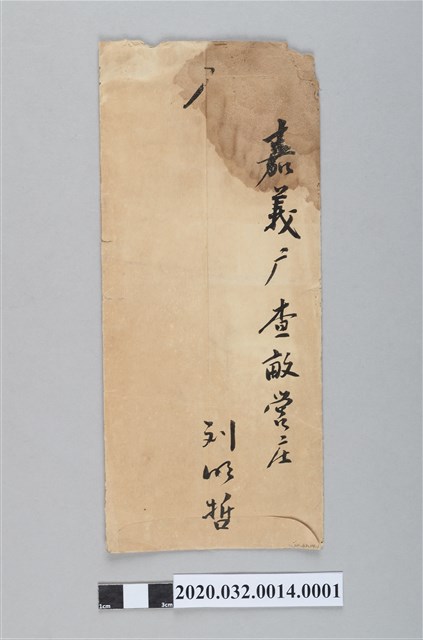 嘉義庁查畝營庄
刘明哲
2020.032.0014.0001
1cm 3cm